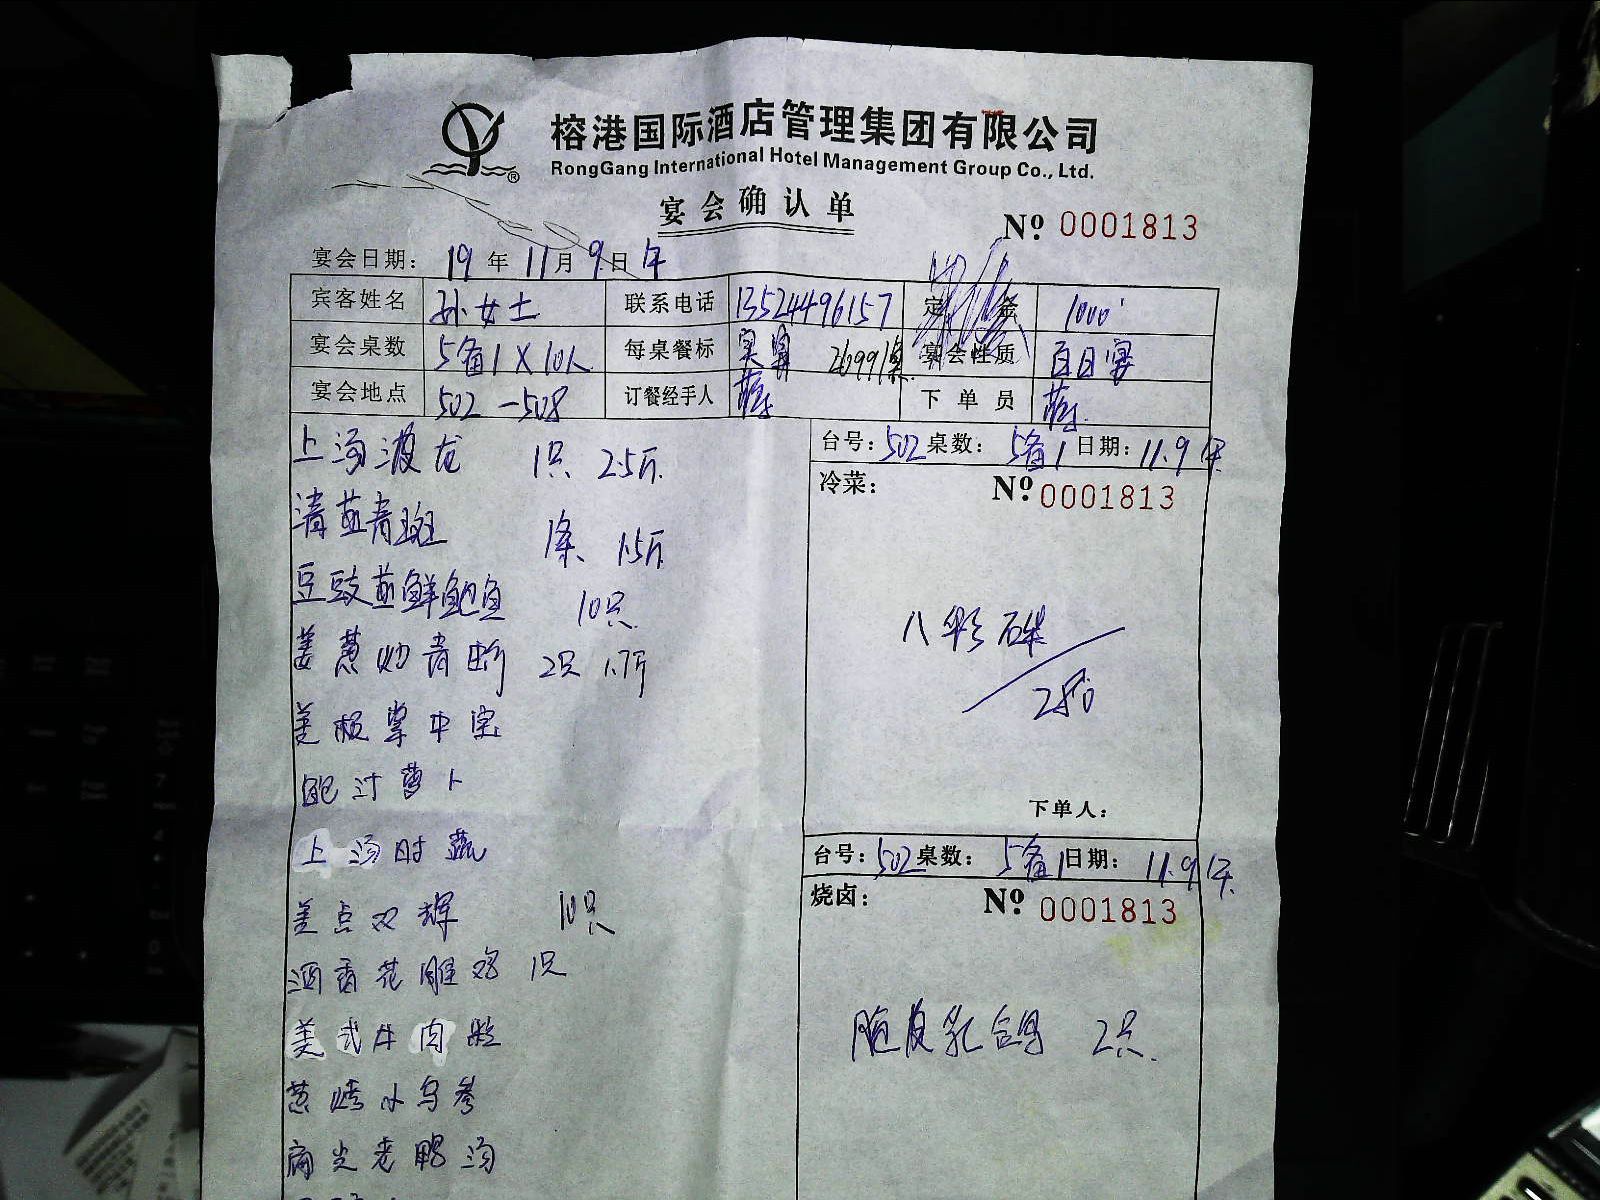 榕港国际酒店管理集团有限公司
RongGang International Hotel Management Group Co., Ltd.
宴会确认单
№ 0001813
宴会日期: 19年11月9日午
宾客姓名 孙女士 联系电话 13524496157 定金 1000
宴会桌数 5备1 X 10人 每桌餐标 2699/桌 宴会性质 百日宴
宴会地点 502-508 订餐经手人 下单员
台号: 502 桌数: 5备1 日期: 11.9午
上汤波龙 1只 2.5斤
冷菜: № 0001813
清蒸青斑 1条 1.5斤
豆豉蒸鲜鲍鱼 10只
八彩碟
姜葱炒青蟹 2只 1.7斤
280
美极掌中宝
鲍汁萝卜
下单人:
上汤时蔬
台号: 502 桌数: 5备1 日期: 11.9午
烧卤: № 0001813
美点双辉 10只
酒香花雕鸡 1只
美式牛肉粒
脆皮乳鸽 2只
葱烤小乌参
扁尖老鸭汤